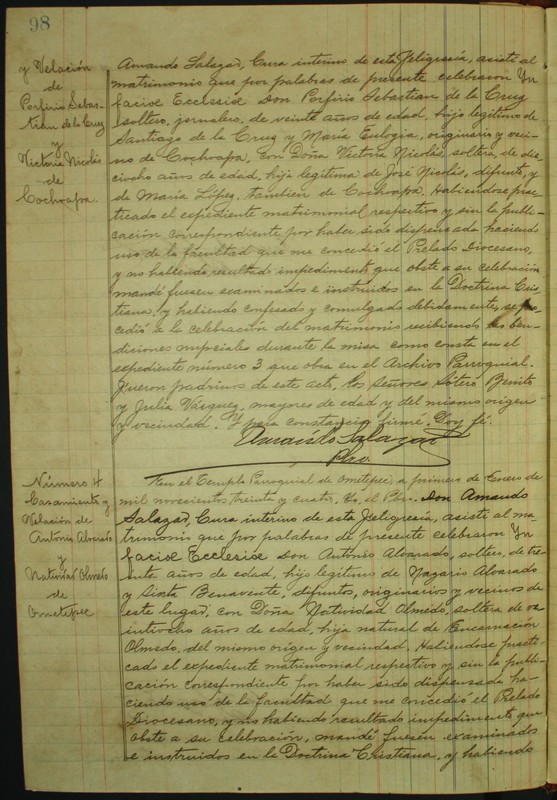 98
y Velación
de
Porfirio Sebas-
tian de la Cruz
y
Victoria Nicolás
de
Cochoapa.
Amando Salazar, Cura interino de esta Feligresía, asistí al
matrimonio que por palabras de presente celebraron Yn
facise Ecclesise Don Porfirio Sebastian de la Cruz
soltero, jornalero, de veinte años de edad, hijo legítimo de
Santiago de la Cruz y María Eulogia, originario y veci-
no de Cochoapa, con Doña Victoria Nicolás, soltera, de die-
ciocho años de edad, hija legítima de José Nicolás, difunto, y
de María López, tambien de Cochoapa. Habiendose prac-
ticado el expediente matrimonial respectivo y sin la publi-
cación correspondiente por haber sido dispensada haciendo
uso de la facultad que me concedió el Prelado Diocesano,
y no habiendo resultado impedimento que obste a su celebración
mandé fuesen examinados e instruidos en la Doctrina Cris-
tiana, y habiendo confesado y comulgado debidamente, se pro-
cedió a la celebración del matrimonio recibiendo las ben-
diciones nupciales durante la misa como consta en el
expediente número 3 que obra en el Archivo Parroquial.
Fueron padrinos de este acto, los Señores Sótero Benito
y Julia Vásquez, mayores de edad y del mismo origen
y vecindad. Y para constancia firmé. Doy fé.
Amando Salazar
Pbro.
Número 4
Casamiento y
Velación de
Antonio Alvarado
y
Natividad Olmedo
de
Ometepec
En el Templo Parroquial de Ometepec, a primero de Enero de
mil novecientos treinta y cuatro, Yo, el Pbro. Don Amando
Salazar, Cura interino de esta Feligresía, asistí al ma-
trimonio que por palabras de presente celebraron Yn
facise Ecclesise Don Antonio Alvarado, soltero, de tre-
inta años de edad, hijo legítimo de Nazario Alvarado
y Sixta Benavente, difuntos, originarios y vecinos de
este lugar, con Doña Natividad Olmedo, soltera de ve
intiocho años de edad, hija natural de Encarnación
Olmedo, del mismo origen y vecindad. Habiendose practi-
cado el expediente matrimonial respectivo y sin la publi-
cación correspondiente por haber sido dispensada ha-
ciendo uso de la facultad que me concedió el Prelado
Diocesano, y no habiendo resultado impedimento que
obste a su celebración, mandé fuesen examinados
e instruidos en la Doctrina Cristiana, y habiendo